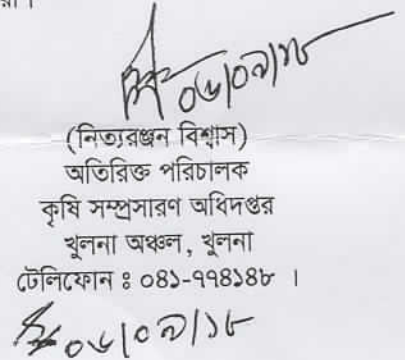 ০৬/০৯/১৮
(নিত্যরঞ্জন বিশ্বাস)
অতিরিক্ত পরিচালক
কৃষি সম্প্রসারণ অধিদপ্তর
খুলনা অঞ্চল, খুলনা
টেলিফোন ঃ ০৪১-৭৭৪১৪৮ ।
০৬/০৯/১৮